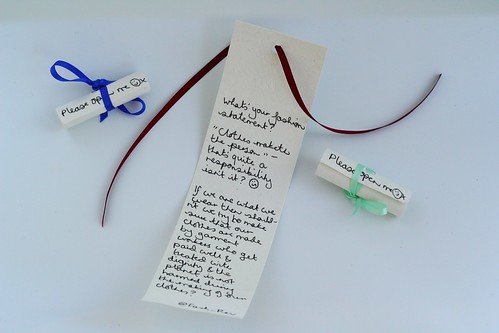 Please open me ☺x
What's your fashion
statement?
"Clothes maketh
the person" –
that's quite a
responsibility
isn't it? ☺
If we are what we
wear then should-
n't we try to make
sure that our
clothes are made
by garment
workers who get
paid well &
treated with
dignity & the
planet is not
harmed during
the making of our
clothes?
Please open me ☺x